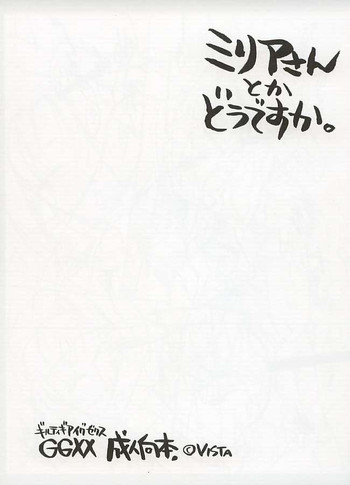 ミリアさん
とか
どうですか。
ギルティギアイグゼクス
GGXX 成人向本. ©VISTA